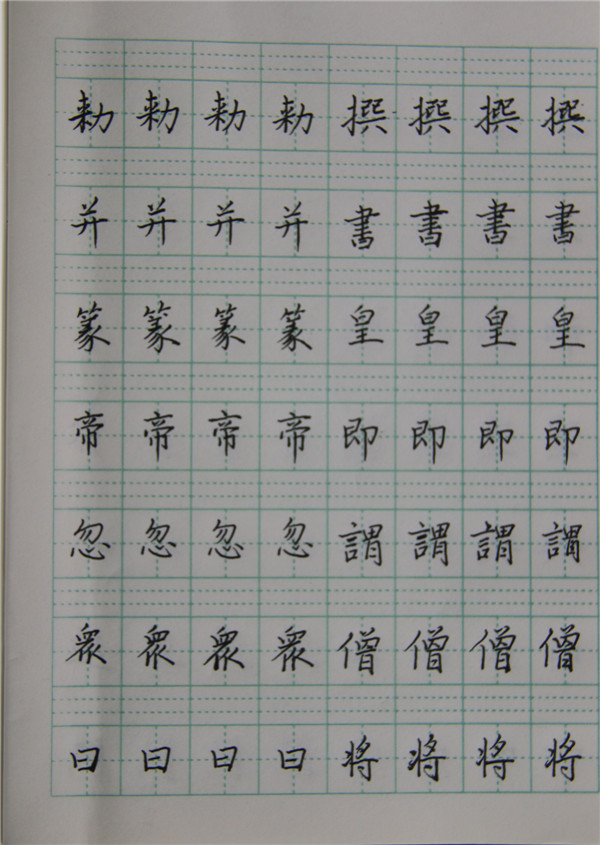 勑勑勑勑撰撰撰撰
并并并并書書書書
篆篆篆篆皇皇皇皇
帝帝帝帝即即即即
忽忽忽忽謂謂謂謂
衆衆衆衆僧僧僧僧
曰曰曰曰将将将将